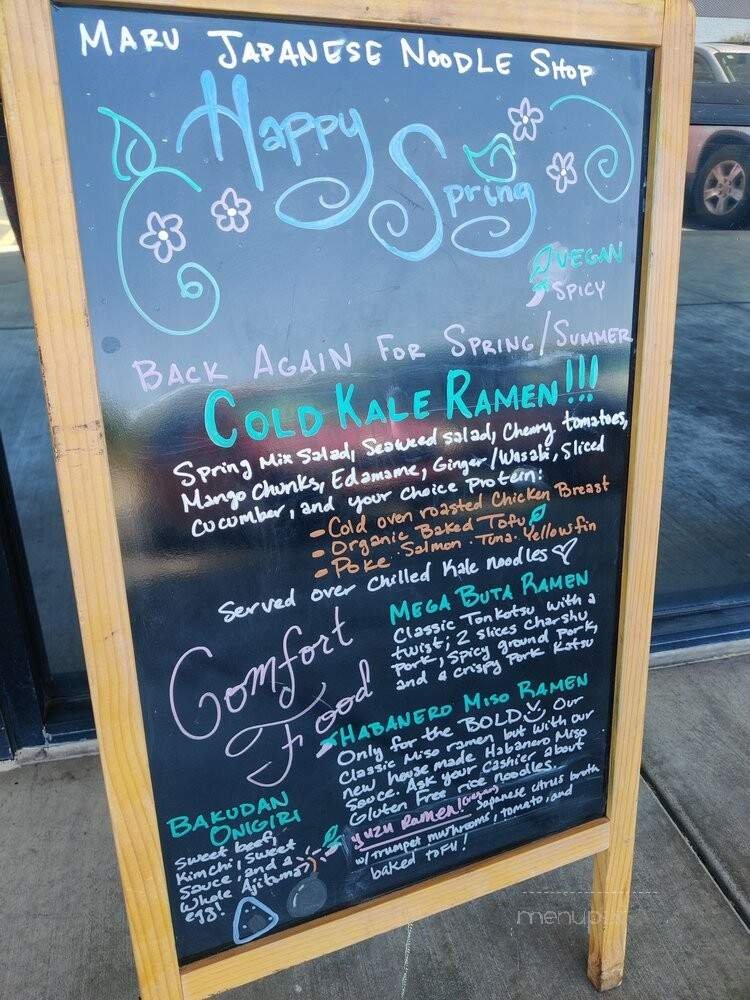 MARU JAPANESE NOODLE SHOP
Happy
Spring
VEGAN
SPICY
BACK AGAIN FOR SPRING/SUMMER
COLD KALE RAMEN!!!
Spring Mix Salad, Seaweed salad, Cherry tomatoes,
Mango Chunks, Edamame, Ginger/Wasabi, Sliced
cucumber, and your choice Protein:
- Cold oven roasted Chicken Breast
- Organic Baked Tofu
- Poke: Salmon. Tuna. Yellowfin
Served over Chilled Kale noodles
Comfort
Food
MEGA BUTA RAMEN
Classic Tonkotsu with a
twist; 2 slices Charshu
Pork, Spicy ground Pork,
and a crispy Pork Katsu
HABANERO MISO RAMEN
Only for the BOLD Our
Classic Miso ramen but with our
new house made Habanero Miso
Sauce. Ask your Cashier about
Gluten Free rice noodles.
Yuzu Ramen! (Vegan) Japanese citrus broth
w/ trumpet mushrooms, tomato, and
baked tofu!
BAKUDAN
ONIGIRI
Sweet beef,
Kimchi, Sweet
Sauce, and a
whole Ajitama
egg!
menupix